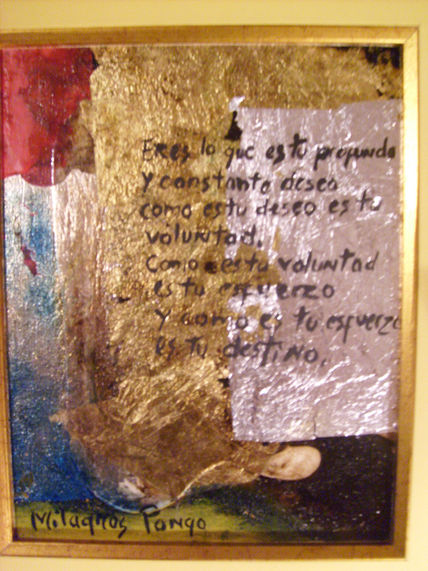 Eres lo que es tu profundo
y constante deseo
como es tu deseo es tu
voluntad.
Como es tu voluntad
es tu esfuerzo
y como es tu esfuerzo
es tu destino.
Milagros Pongo